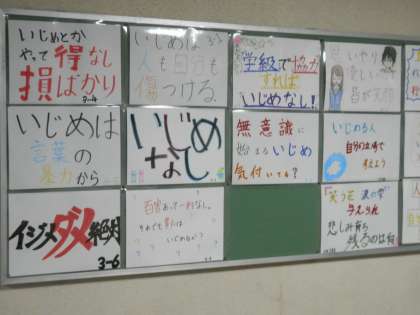 いじめとか
やって得なし
損ばかり
いじめは
人も自分も
傷つける。
学級で協力
すれば
いじめなし!
いやり
いじめは
言葉の
暴力から
いじめ
なし
無意識に
始まるいじめ
気付いてる?
いじめる人
自分の立場で
考えよう
イジメダメ絶対
3-6
百害あって一利なし。
それでも君は
いじめるの?
笑う者 涙の雫
与えられ
悲しみ育ち
残るのは何